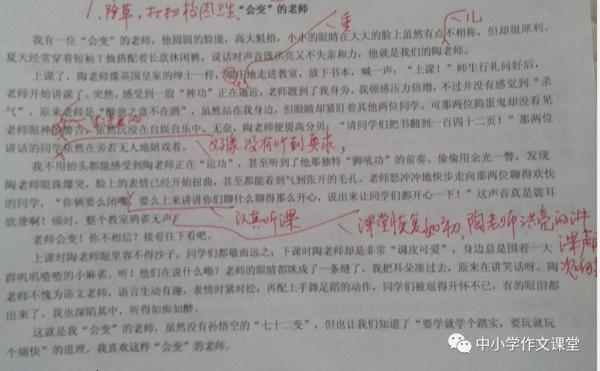 1、除草,打扫校园卫生
“会变”的老师
我有一位“会变”的老师,他圆圆的脸庞,高大魁梧,小小的眼睛在大大的脸上虽然有点不相称,但却很犀利。
儿
夏天经常穿着短袖T恤搭配着长款休闲裤,说话时声音既洪亮又不失亲和力,他就是我们的陶老师。
上课了,陶老师像英国皇家的绅士一样,地走进教室,放下书本,喊一声:“上课!”师生行礼问好后,
老师开始讲课了。突然,感受到一股“神功”正在逼近,老师踱到了我身旁,我顿感压力倍增,不过并没有感觉到“杀
气”,原来老师是“醉翁之意不在酒”,虽然站在我身边,但眼睛却紧盯着其他两位同学。可那两位捣蛋鬼却没看见
老师眼神的警告,依然沉浸在自娱自乐中。无奈,陶老师便提高分贝:“请同学们把书翻到一百四十二页!”那两位
讲话的同学依然在旁若无人地嬉戏着。
好像没有听到要求,
我不用抬头都能感受到陶老师正在“运功”,甚至听到了他那独特“狮吼功”的前奏。偷偷用余光一瞥,发现
陶老师眼珠爆突,脸上的表情已经开始扭曲,甚至都能看到气到张开的毛孔。老师怒冲冲地快步走向那两位聊得欢快
的同学,“你俩要么闭嘴,要么上来讲讲你们聊什么聊得那么开心,说出来让同学们都开心一下!”这声音真是震耳
欲聋啊!顿时,整个教室鸦雀无声
认真听课
课堂恢复如初,陶老师洪亮的讲
课声
老师会变!你不相信?接着往下看吧。
上课时陶老师眼里容不得沙子,同学们都敬而远之;下课时陶老师却是非常“调皮可爱”,身边总是围着一大
群叽叽喳喳的小麻雀。听!他们在说什么呢?老师的眼睛都眯成了一条缝了,我把耳朵凑过去,原来在讲笑话呀。陶
老师不愧为语文老师,语言生动有趣,表情时紧时松,再配上手舞足蹈的动作,同学们被逗得开怀不已,有的眼泪都
出来了。我也深陷其中,听得如痴如醉。
这就是我“会变”的老师,虽然没有孙悟空的“七十二变”,但也让我们知道了“要学就学个踏实,要玩就玩
个痛快”的道理,我喜欢这样“会变”的老师。
中小学作文课堂